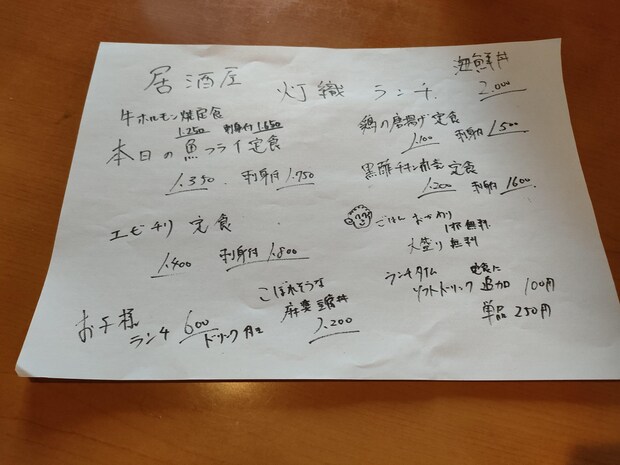 居酒屋 灯織 ランチ
海鮮丼
2.000
牛ホルモン焼定食
1.250 刺身付 1.650
本日の魚フライ定食
1.350 刺身付 1.750
エビチリ 定食
1.400 刺身付 1.800
お子様
ランチ 600 ドリンク付
こぼれそうな
麻婆豆腐丼
1.200
鶏の唐揚げ定食
1.100 刺身付 1500
黒酢チキン南蛮定食
1.200 刺身付 1600
ごはん おかわり
1杯無料
大盛り 無料
ランチタイム 定食に
ソフトドリンク 追加 100円
単品 250円